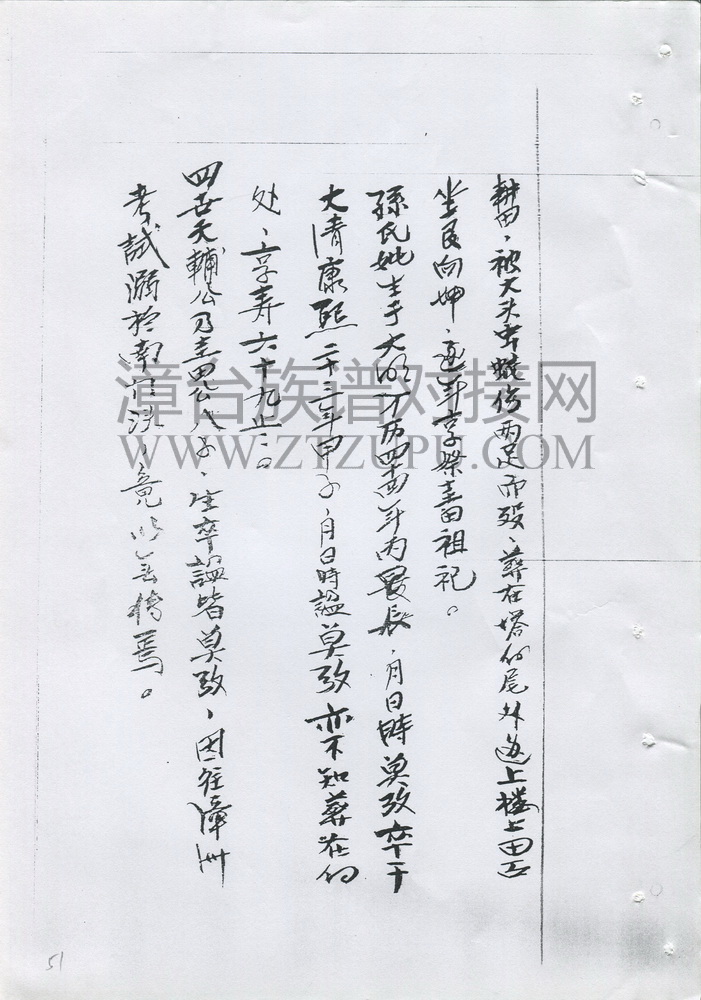 耕田、被大头虫蜈伤两足而殁、葬在塔仔尾外边上楼上田
坐艮向坤、逐年享祭耆田祖祀。
孫氏妣生于大明万历四十四年丙辰、月日時莫攷卒于
大清康熙二十三年甲子、月日時諡莫攷亦不知葬在何
处、享寿六十九止。
四世天輔公乃耆田公之子、生卒諡皆莫攷、因往漳州
考試溺於南、竟以無傳焉。
漳台族谱对接网
WWW.ZTZUPU.COM
51